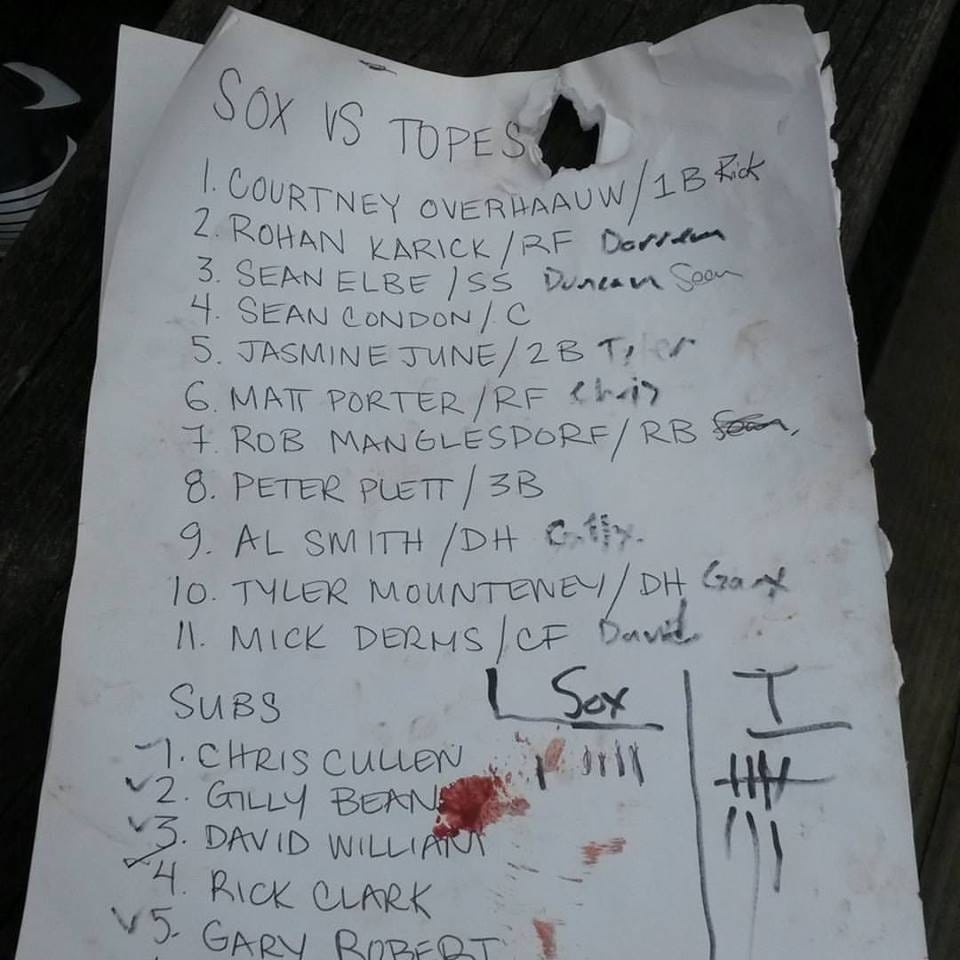 SOX VS TOPES
1. COURTNEY OVERHAAUW/1B Rick
2. ROHAN KARICK/RF Darren
3. SEAN ELBE/SS Duncan Sean
4. SEAN CONDON/C
5. JASMINE JUNE/2B Tyler
6. MATT PORTER/RF Chris
7. ROB MANGLESDORF/RB
8. PETER PLETT/3B
9. AL SMITH/DH
10. TYLER MOUNTENEY/DH Gary
11. MICK DERMS/CF David
SUBS
Sox T
1. CHRIS CULLEN
2. GILLY BEAN
3. DAVID WILLIAM
4. RICK CLARK
5. GARY ROBERT